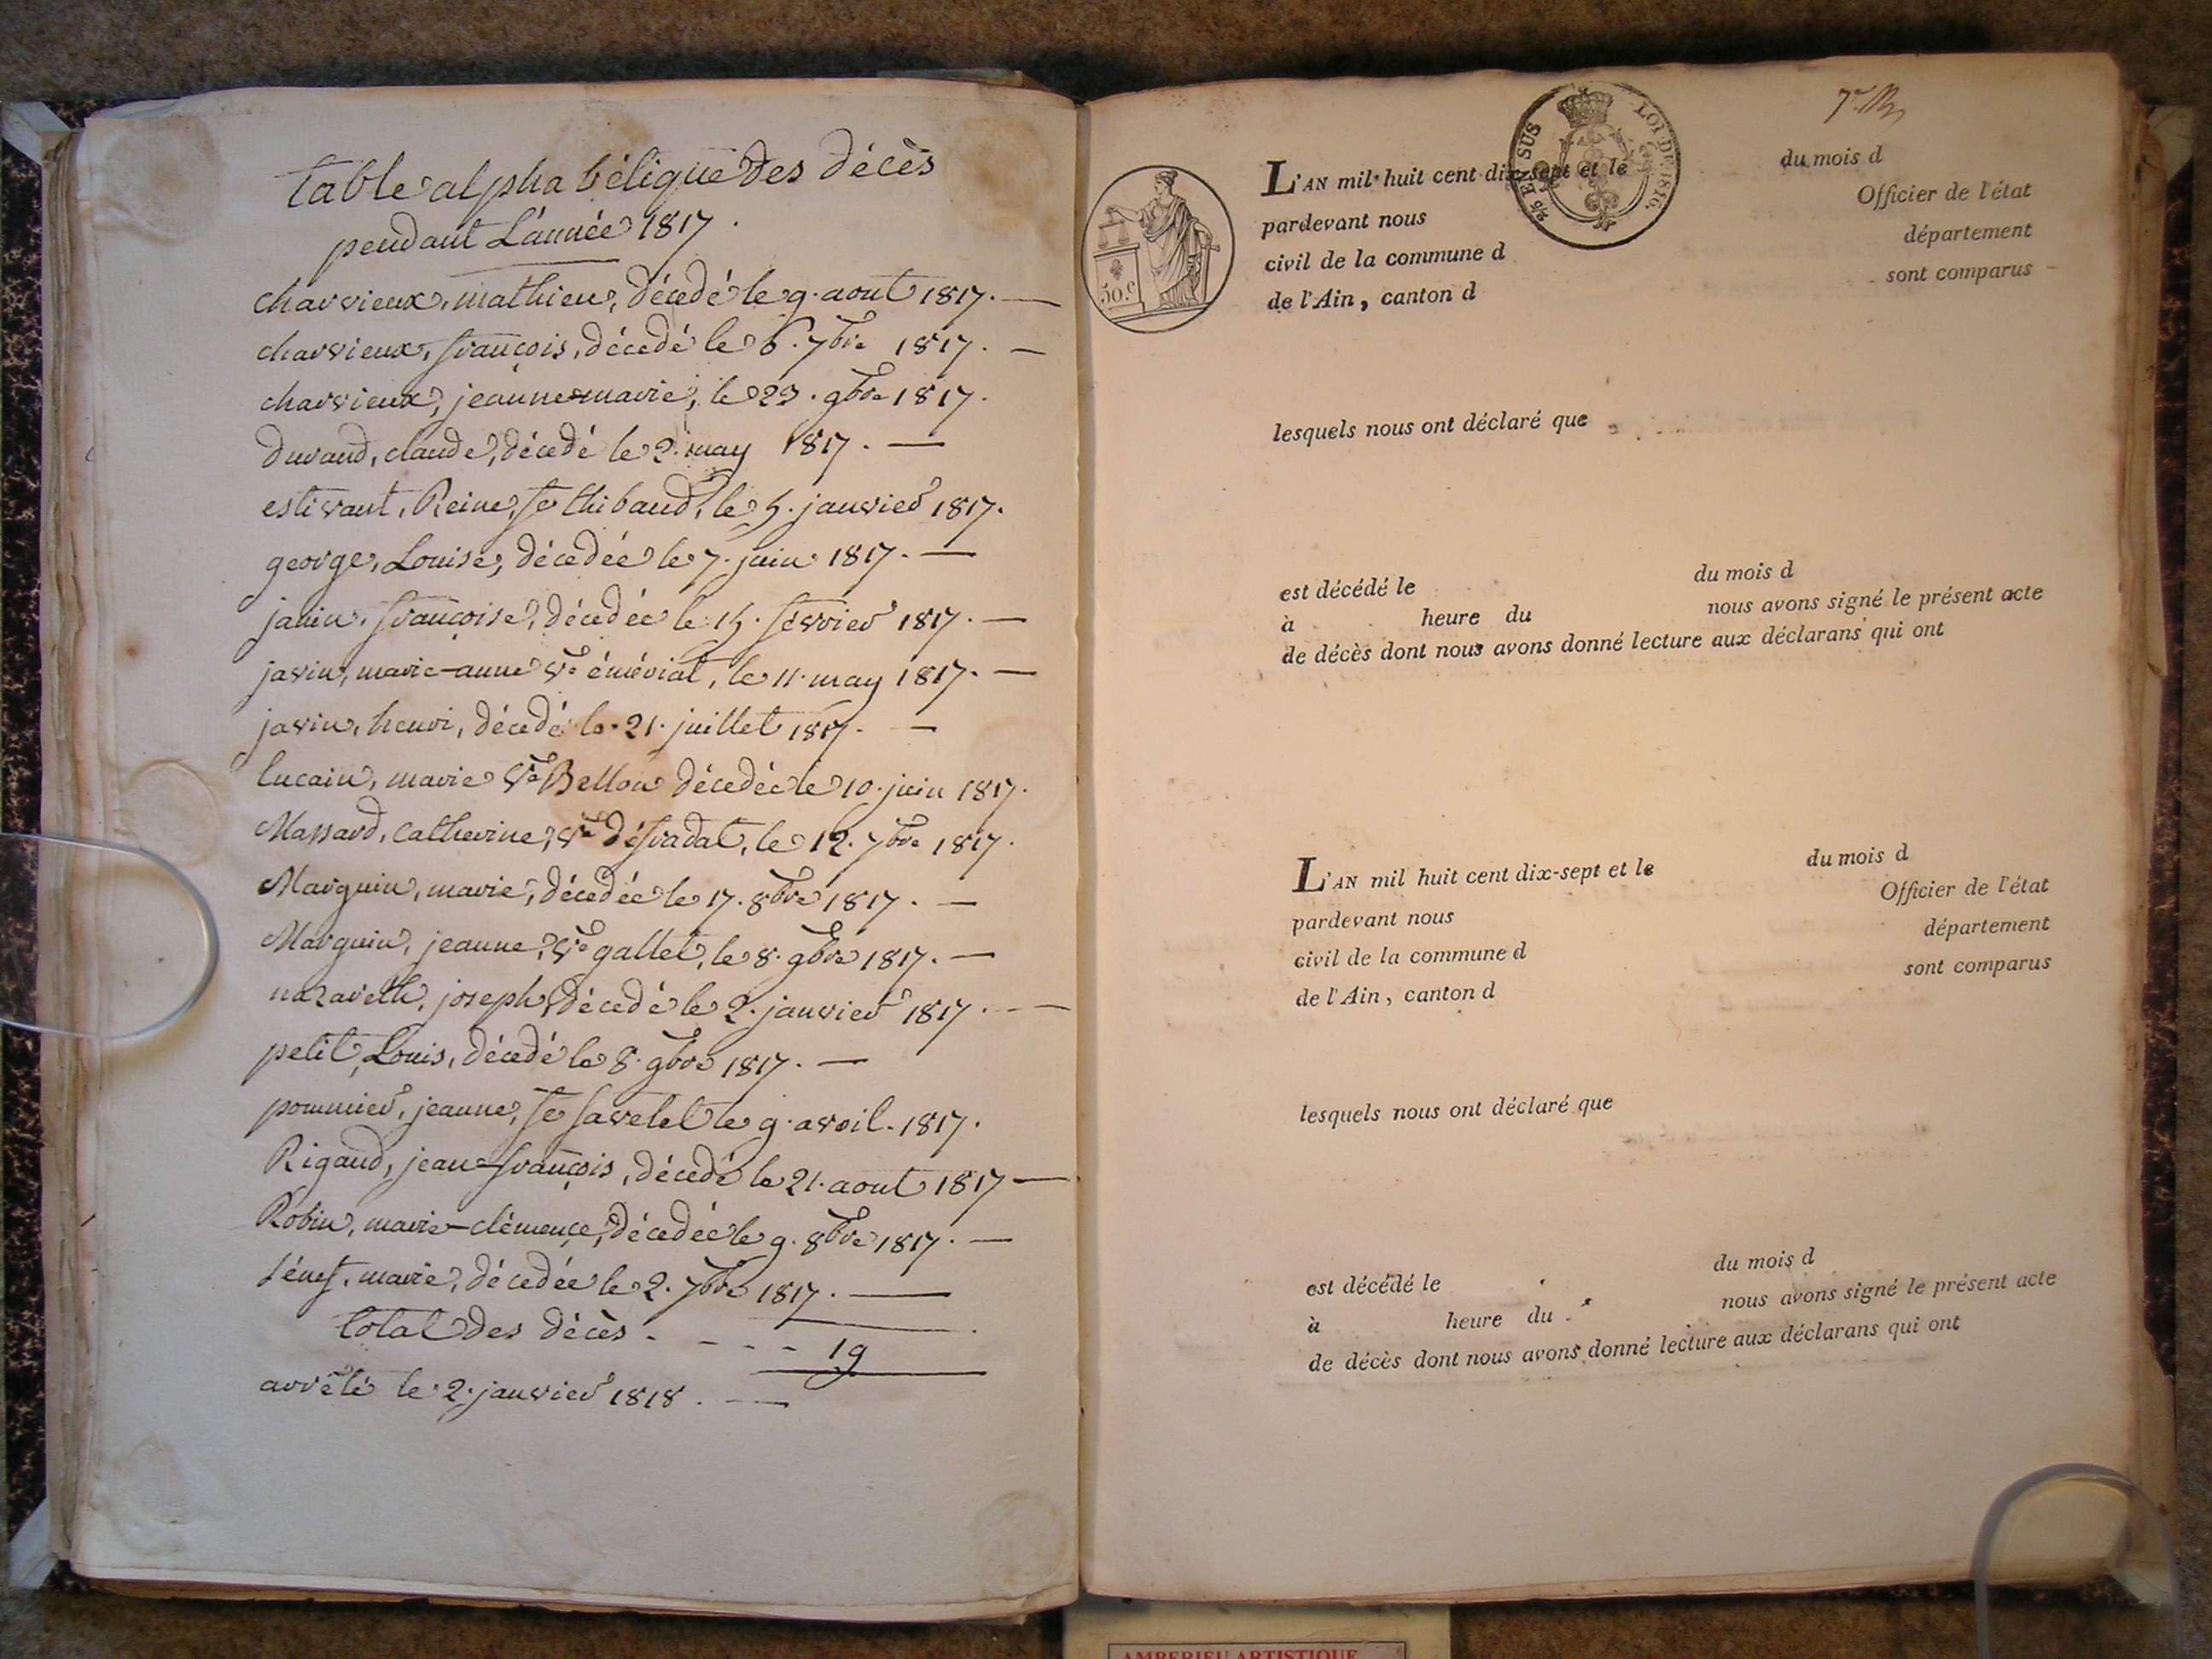 table alphabétique des décès
pendant L'année 1817.
charvieux, mathieu, décédé le 9. aout 1817. —
charvieux, françois, décédé le 6. 7bre 1817. —
charvieux, jeanne-marie, le 23. 9bre 1817.
Durand, claude, décédé le 2. may 1817. —
estivant, Reine, fe thibaud, le 5. janvier 1817.
george, Louise, décedée le 7. juin 1817. —
janin, françoise, décedée le 15. fevrier 1817. —
javin, marie-anne ve émériat, le 11. may 1817. —
javin, henri, décedé le 21. juillet 1817. —
lucain, marie Ve Bellon décedée le 10. juin 1817.
Massard, Catherine, ve désradat, le 12. 7bre 1817.
Marguin, marie, décedée le 17. 8bre 1817. —
Marguin, jeanne, ve gallet, le 8. 9bre 1817. —
nazareth, joseph, décedé le 2. janvier 1817. —
petit, Louis, décedé le 8. 9bre 1817. —
pommier, jeanne, fe savelet le 9. avril. 1817.
Rigaud, jean-françois, décedé le 21. aout 1817 —
Robin, marie-clémence, décedée le 9. 8bre 1817. —
marie, décedée le 2. 7bre 1817. —
total des décès - - - - 19
arrêté le 2. janvier 1818. —
50.c
2/5 EN SUS
LOI DE 1816.
L'AN mil huit cent dix-sept et le du mois d
pardevant nous Officier de l'état
civil de la commune d département
de l'Ain, canton d sont comparus
lesquels nous ont déclaré que
est décédé le du mois d
à heure du nous avons signé le présent acte
de décès dont nous avons donné lecture aux déclarans qui ont
L'AN mil huit cent dix-sept et le du mois d
pardevant nous Officier de l'état
civil de la commune d département
de l'Ain, canton d sont comparus
lesquels nous ont déclaré que
est décédé le du mois d
à heure du nous avons signé le présent acte
de décès dont nous avons donné lecture aux déclarans qui ont
AMBERIEU ARTISTIQUE